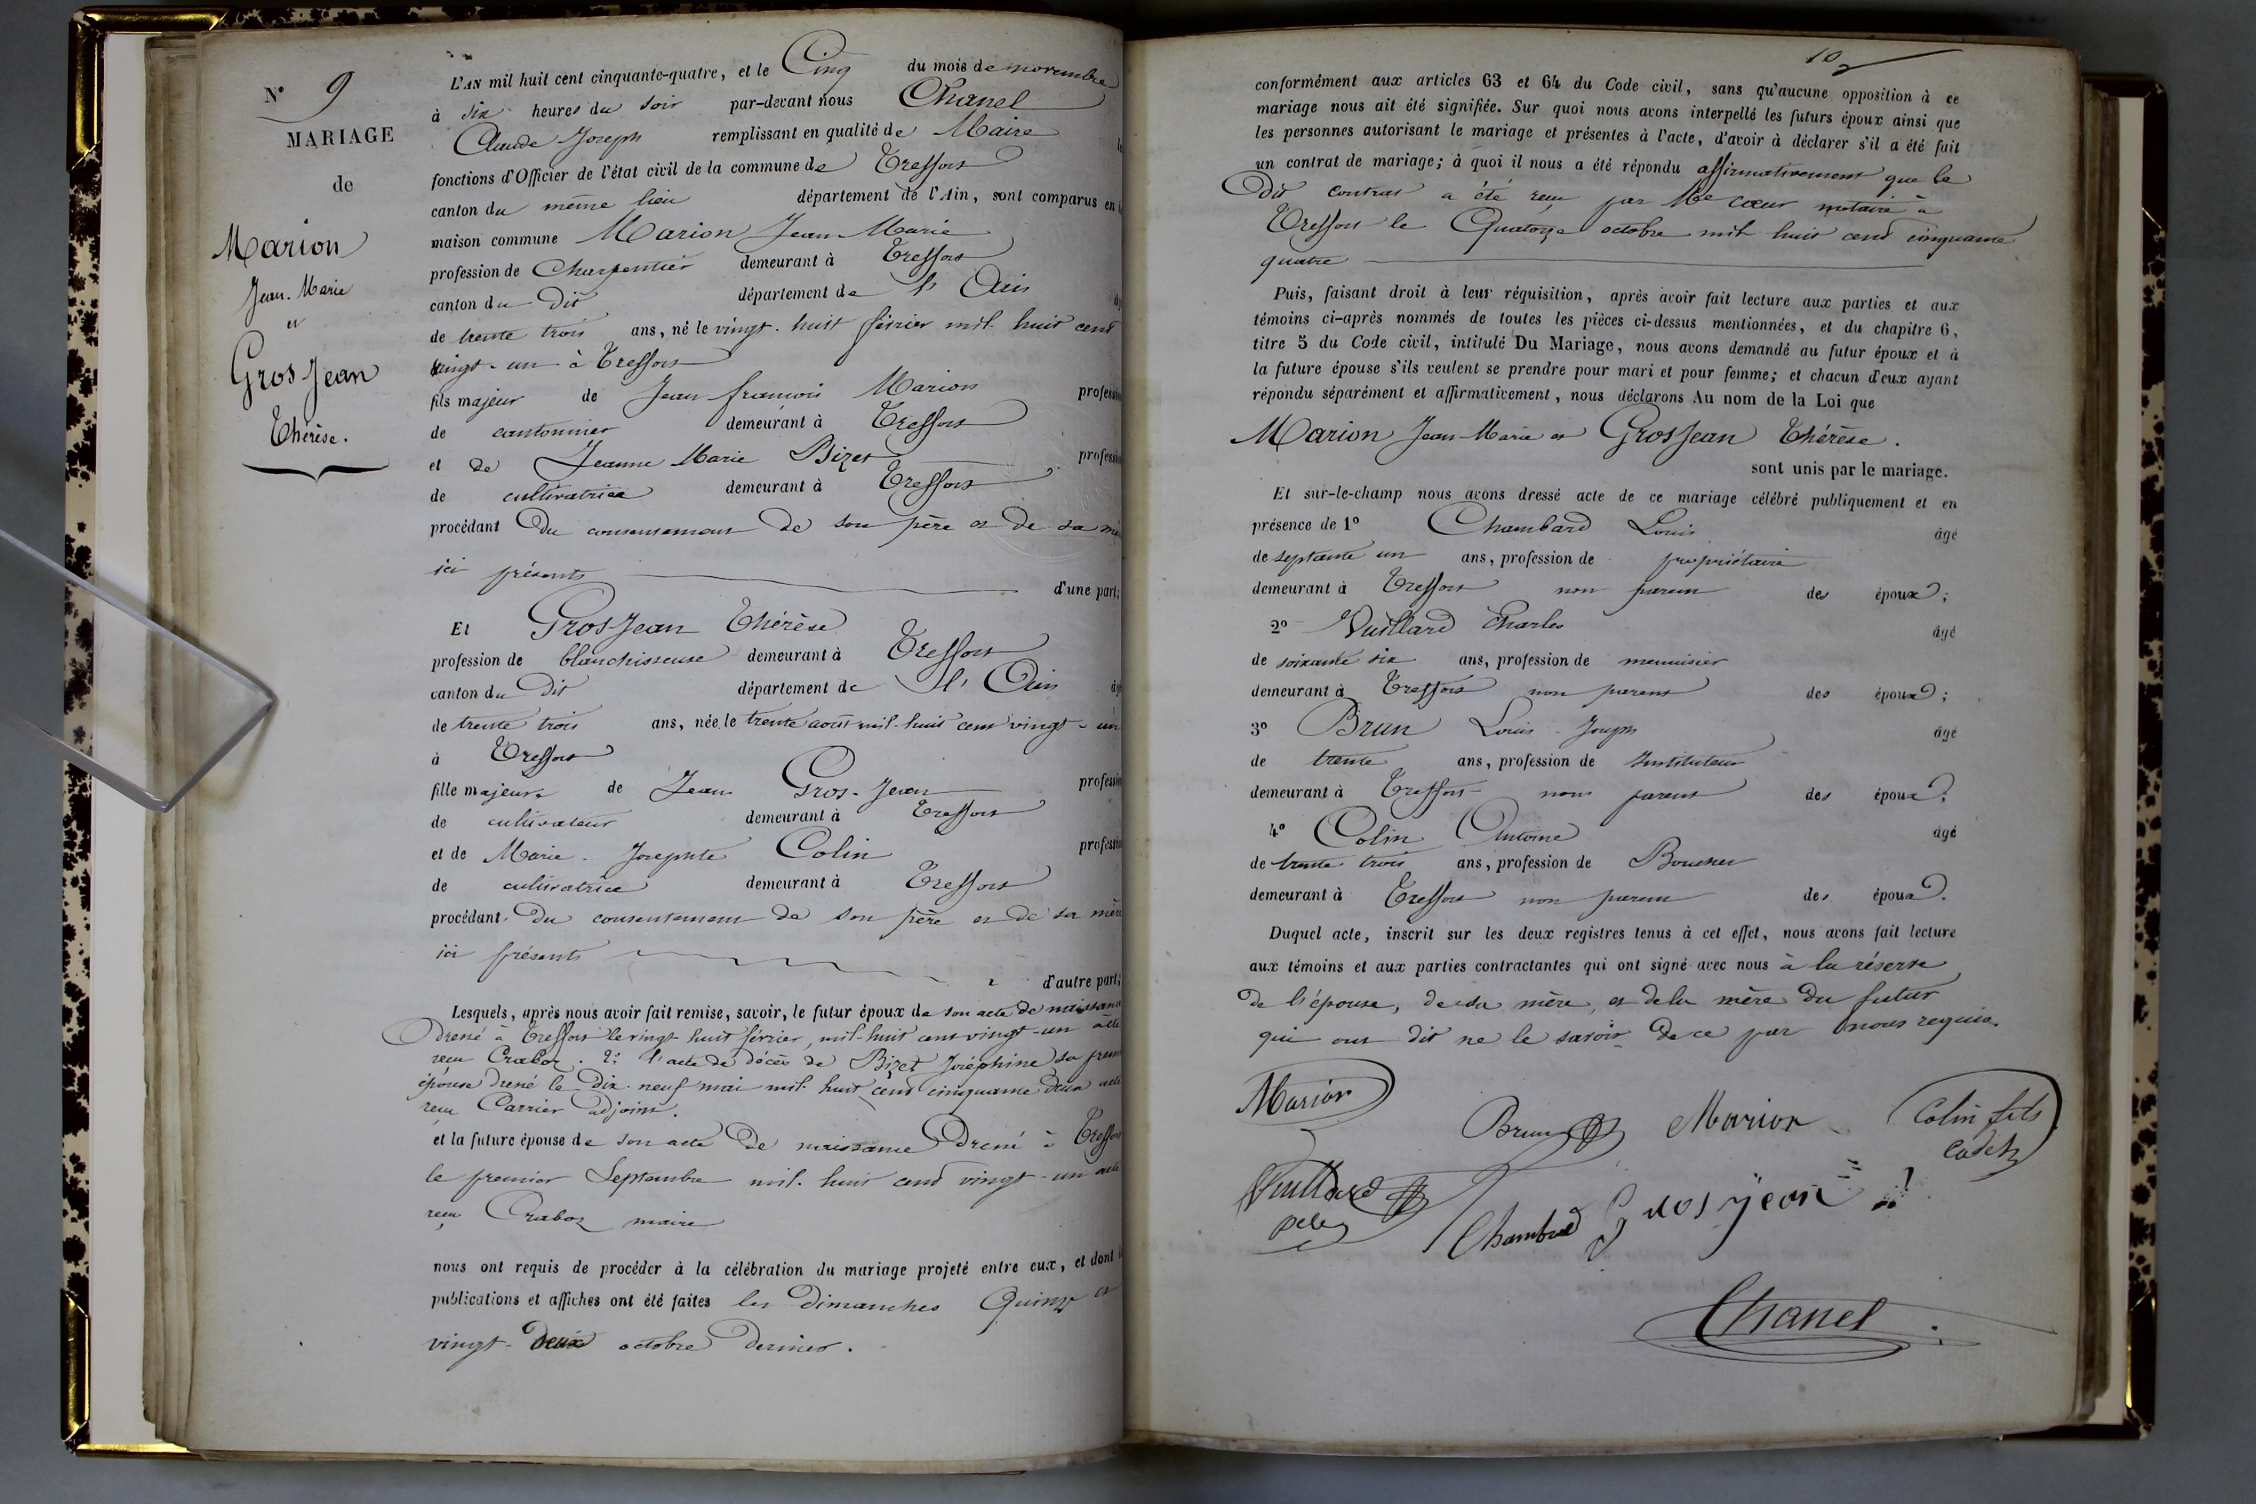 N° 9
MARIAGE
de
Marion
Jean-Marie
et
GrosJean
Thérèse.
L'AN mil huit cent cinquante-quatre, et le Cinq du mois de novembre
à six heures du soir par-devant nous Chanel
Claude Joseph remplissant en qualité de Maire
fonctions d'Officier de l'état civil de la commune de Treffort
canton du même lieu département de l'Ain, sont comparus en
maison commune Marion Jean Marie
profession de Charpentier demeurant à Treffort
canton du dit département de l'Ain
de trente trois ans, né le vingt-huit février mil huit cent
vingt-un à Treffort
fils majeur de Jean françois Marion profession
de cantonnier demeurant à Treffort
et de Jeanne Marie Bizet profession
de cultivatrice demeurant à Treffort
procédant du consentement de son père et de sa mère
ici présents d'une part;
Et GrosJean Thérèse
profession de blanchisseuse demeurant à Treffort
canton du dit département de l'Ain
de trente trois ans, née le trente août mil-huit cent vingt-un
à Treffort
fille majeure de Jean Gros-Jean profession
de cultivateur demeurant à Treffort
et de Marie-Josephte Colin profession
de cultivatrice demeurant à Treffort
procédant du consentement de son père et de sa mère
ici présents d'autre part;
Lesquels, après nous avoir fait remise, savoir, le futur époux de son acte de naissance
dressé à Treffort le vingt-huit février, mil-huit cent vingt-un acte
reçu Craboz. 2° l'acte de décès de Bizet Joséphine sa
épouse dressé le dix-neuf mai mil-huit cent cinquante deux acte
reçu Carrier adjoint.
et la future épouse de son acte de naissance dressé à Treffort
le premier Septembre mil-huit cent vingt-un acte
reçu Craboz maire
nous ont requis de procéder à la célébration du mariage projeté entre eux, et dont
publications et affiches ont été faites les dimanches Quinze et
vingt-deux octobre dernier.
10
conformément aux articles 63 et 64 du Code civil, sans qu'aucune opposition à ce
mariage nous ait été signifiée. Sur quoi nous avons interpellé les futurs époux ainsi que
les personnes autorisant le mariage et présentes à l'acte, d'avoir à déclarer s'il a été fait
un contrat de mariage; à quoi il nous a été répondu affirmativement que le
dit contrat a été reçu par Me Cœur notaire à
Treffort le Quatorze octobre mil huit cent cinquante
quatre
Puis, faisant droit à leur réquisition, après avoir fait lecture aux parties et aux
témoins ci-après nommés de toutes les pièces ci-dessus mentionnées, et du chapitre 6,
titre 5 du Code civil, intitulé Du Mariage, nous avons demandé au futur époux et à
la future épouse s'ils veulent se prendre pour mari et pour femme; et chacun d'eux ayant
répondu séparément et affirmativement, nous déclarons Au nom de la Loi que
Marion Jean-Marie et GrosJean Thérèse.
sont unis par le mariage.
Et sur-le-champ nous avons dressé acte de ce mariage célébré publiquement et en
présence de 1° Chambard Louis âgé
de septante un ans, profession de propriétaire
demeurant à Treffort non parent des époux;
2° Vuillard Charles âgé
de soixante six ans, profession de menuisier
demeurant à Treffort non parent des époux;
3° Brun Louis-Joseph âgé
de trente ans, profession de Instituteur
demeurant à Treffort non parent des époux.
4° Colin Antoine âgé
de trente trois ans, profession de Boucher
demeurant à Treffort non parent des époux.
Duquel acte, inscrit sur les deux registres tenus à cet effet, nous avons fait lecture
aux témoins et aux parties contractantes qui ont signé avec nous à la réserve
de l'épouse, de sa mère, et de la mère du futur
qui ont dit ne le savoir de ce par nous requis.
Marion
Brun
Marion
Colin fils
cadet
Vuillard
père
Chambard
grosjean
Chanel